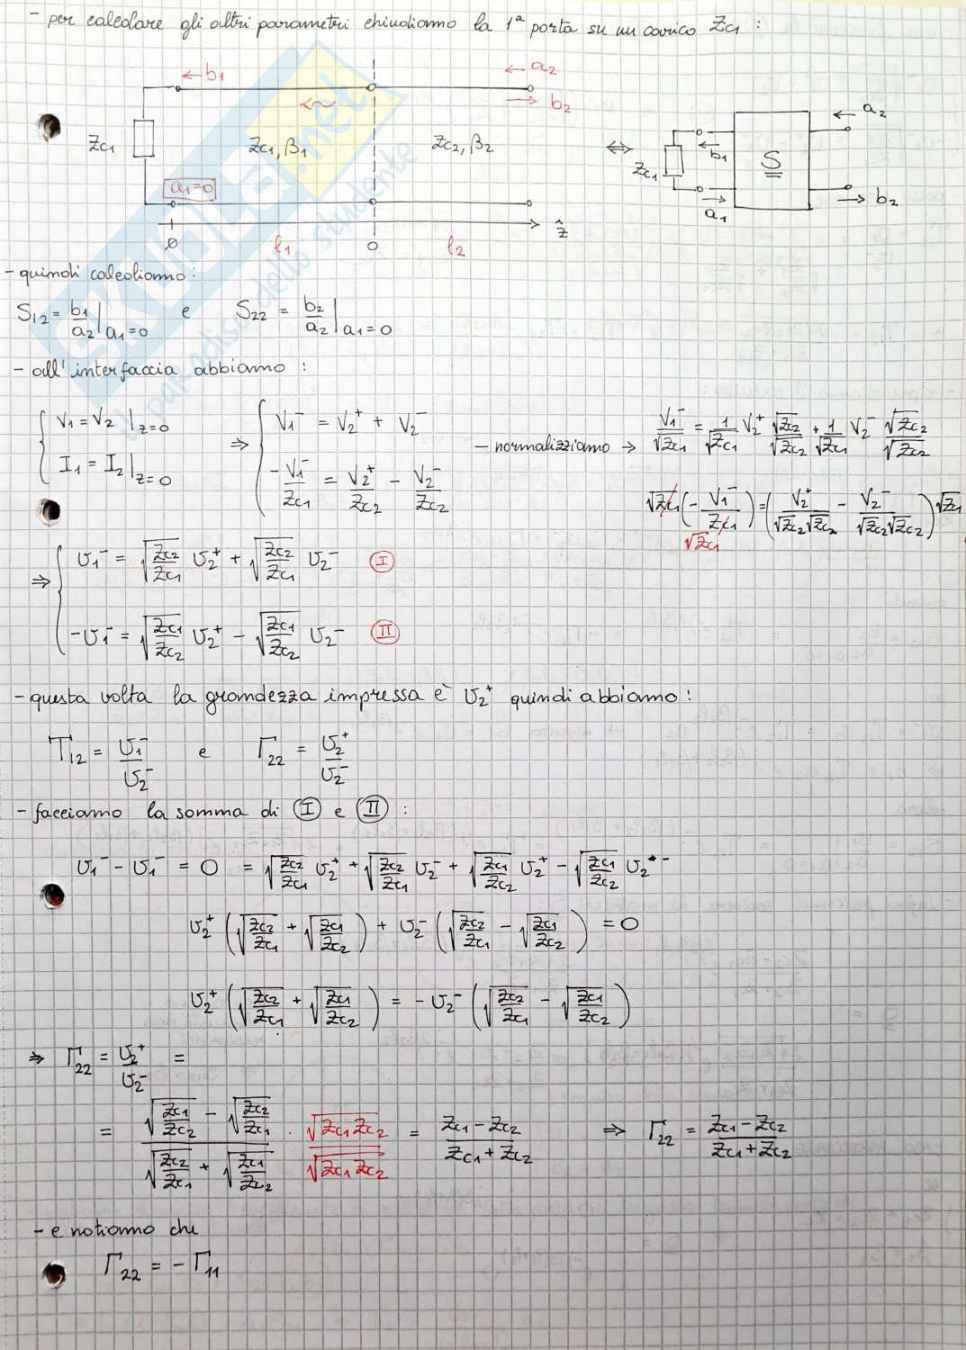 - per calcolare gli altri parametri chiudiamo la 1ª porta su un carico Zc1 :
← b1
← a2
→ b2
Zc1
Zc1, β1
Zc2, β2
a1=0
0
l1
0
l2
ẑ
⇔
Zc1
b1
a1
S
← a2
→ b2
- quindi calcoliamo:
S12 = b1/a2 |a1=0 e S22 = b2/a2 |a1=0
- all'interfaccia abbiamo :
{ V1 = V2 |z=0
I1 = I2 |z=0
⇒ { V1⁻ = V2⁺ + V2⁻
-V1⁻/Zc1 = V2⁺/Zc2 - V2⁻/Zc2
- normalizziamo → V1⁻/√Zc1 = 1/√Zc1 V2⁺ √Zc2/√Zc2 + 1/√Zc1 V2⁻ √Zc2/√Zc2
√Zc1 (- V1⁻/Zc1) = (V2⁺/√Zc2√Zc2 - V2⁻/√Zc2√Zc2) √Zc1
√Zc1
⇒ { υ1⁻ = √(Zc2/Zc1) υ2⁺ + √(Zc2/Zc1) υ2⁻ (I)
-υ1⁻ = √(Zc1/Zc2) υ2⁺ - √(Zc1/Zc2) υ2⁻ (II)
- questa volta la grandezza impressa è υ2⁺ quindi abbiamo :
T12 = υ1⁻/υ2⁻ e Γ22 = υ2⁺/υ2⁻
- facciamo la somma di (I) e (II) :
υ1⁻ - υ1⁻ = 0 = √(Zc2/Zc1) υ2⁺ + √(Zc2/Zc1) υ2⁻ + √(Zc1/Zc2) υ2⁺ - √(Zc1/Zc2) υ2⁻
υ2⁺ (√(Zc2/Zc1) + √(Zc1/Zc2)) + υ2⁻ (√(Zc2/Zc1) - √(Zc1/Zc2)) = 0
υ2⁺ (√(Zc2/Zc1) + √(Zc1/Zc2)) = - υ2⁻ (√(Zc2/Zc1) - √(Zc1/Zc2))
⇒ Γ22 = υ2⁺/υ2⁻ =
= (√(Zc1/Zc2) - √(Zc2/Zc1))/(√(Zc2/Zc1) + √(Zc1/Zc2)) · √(Zc1 Zc2)/√(Zc1 Zc2) = (Zc1 - Zc2)/(Zc1 + Zc2) ⇒ Γ22 = (Zc1 - Zc2)/(Zc1 + Zc2)
- e notiamo che
Γ22 = - Γ11
skuola.net
il paradiso dello studente